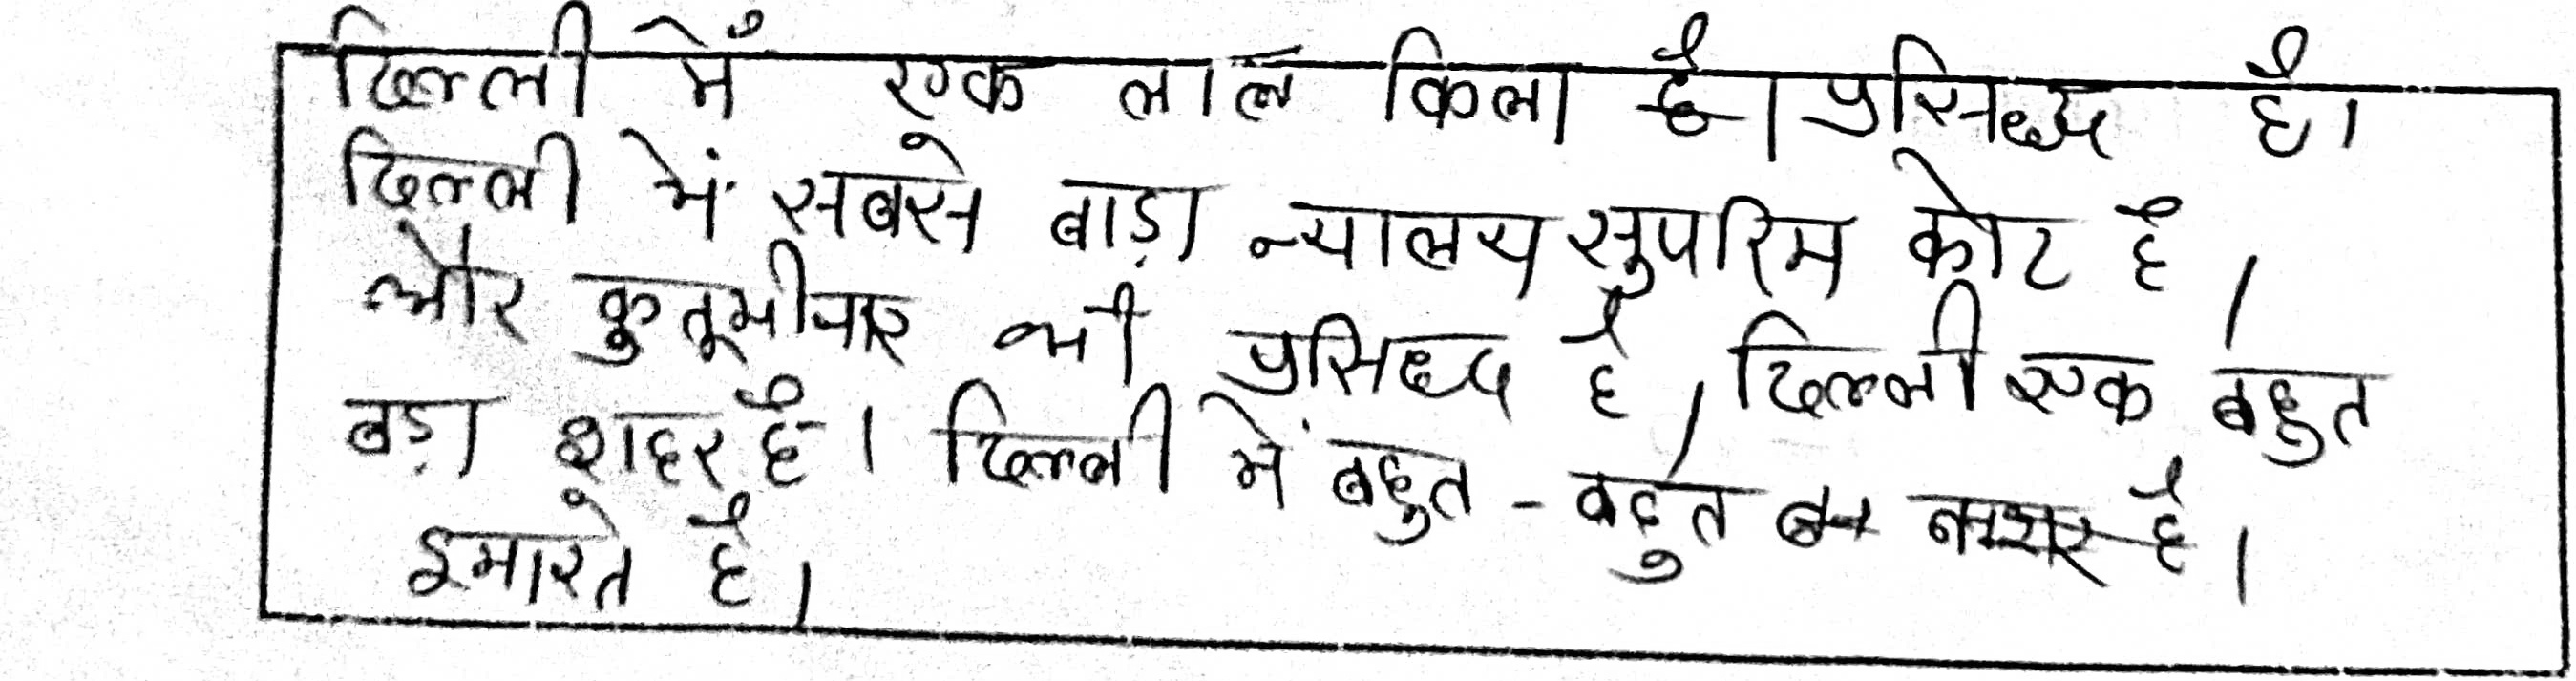 दिल्ली में एक लाल किला है। प्रसिध्द है।
दिल्ली में सबसे बाड़ा न्यालय सुपरिम कोट है।
और कुतूमीनार भी प्रसिध्द है। दिल्ली एक बहुत
बड़ा शहर है। दिल्ली में बहुत - बहुत है।
इमारते है।